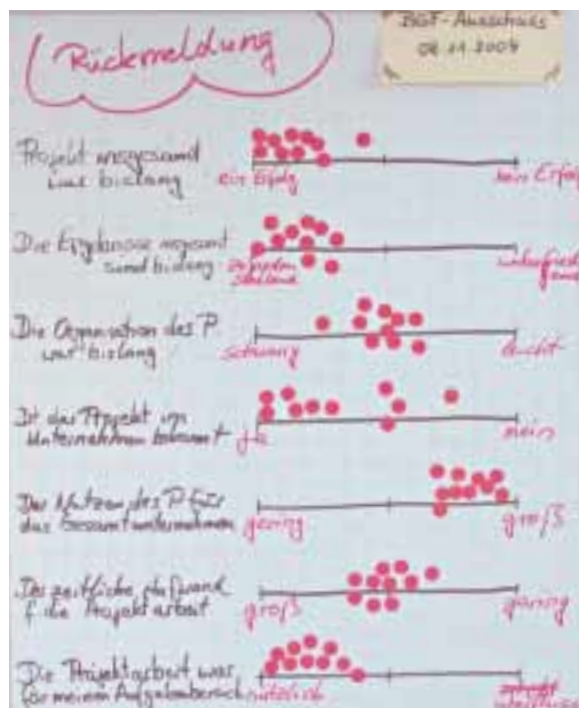 Rückmeldung
BGF-Ausschuss
Projekt insgesamt
war bislang
ein Erfolg
kein Erfolg
Die Ergebnisse insgesamt
sind bislang
Die Organisation des P
war bislang
schwierig
leicht
Ist das Projekt im
Unternehmen bekannt
ja
nein
Der Nutzen des P für
das Gesamtunternehmen
gering
groß
Der zeitliche Aufwand
f die Projektarbeit
groß
gering
Die Projektarbeit war
für meinen Aufgabenbereich
nützlich